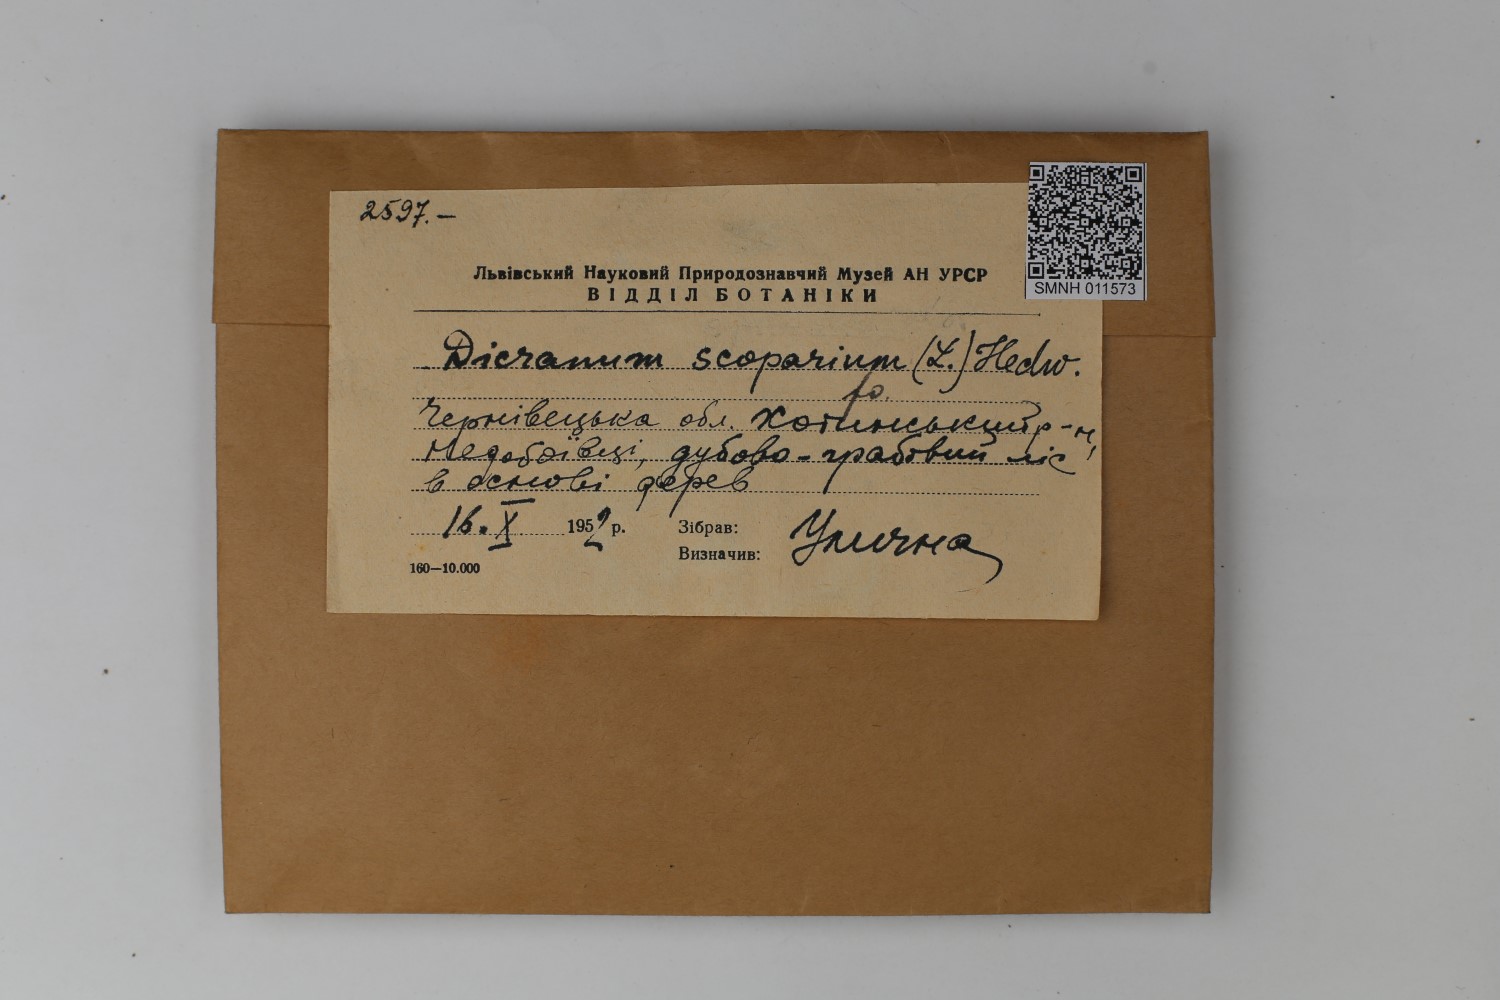 2597.-
SMNH 011573
Львівський Науковий Природознавчий Музей АН УРСР
ВІДДІЛ БОТАНІКИ
Dicranum scoparium (L.) Hedw.
fo.
Чернівецька обл. Хотинський р-н,
Недобоївці, дубово-грабовий ліс
в основі дерев
16. X 1952 р.
Зібрав:
Визначив: Улична
160—10.000